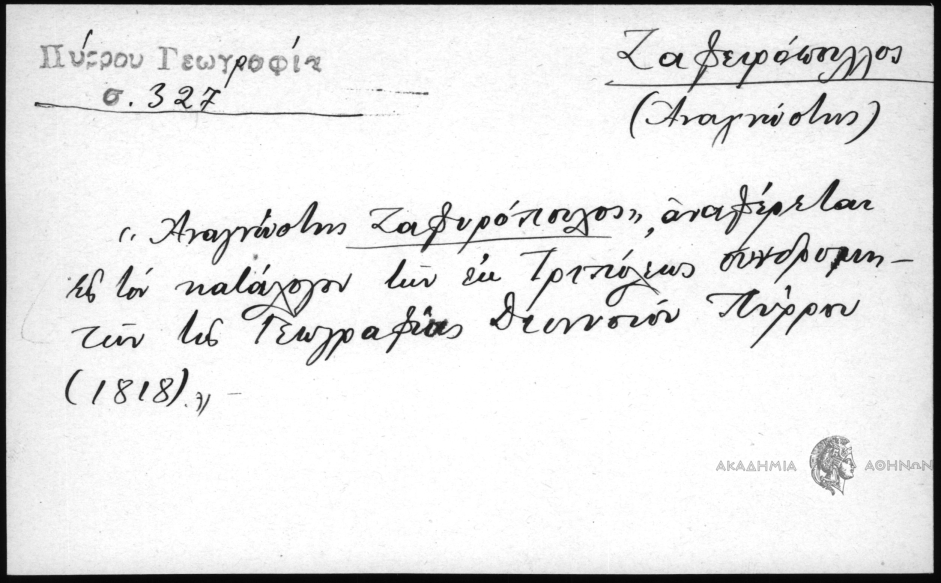 Πύρρου Γεωγραφία
σ. 327
Ζαφειρόπουλος
(Αναγνώστης)
«Αναγνώστης Ζαφυρόπουλος», αναφέρεται
εις τον κατάλογον των εκ Τριπόλεως συνδρομη-
τών της Γεωγραφίας Διονυσίου Πύρρου
(1818).» -
ΑΚΑΔΗΜΙΑ ΑΘΗΝΩΝ